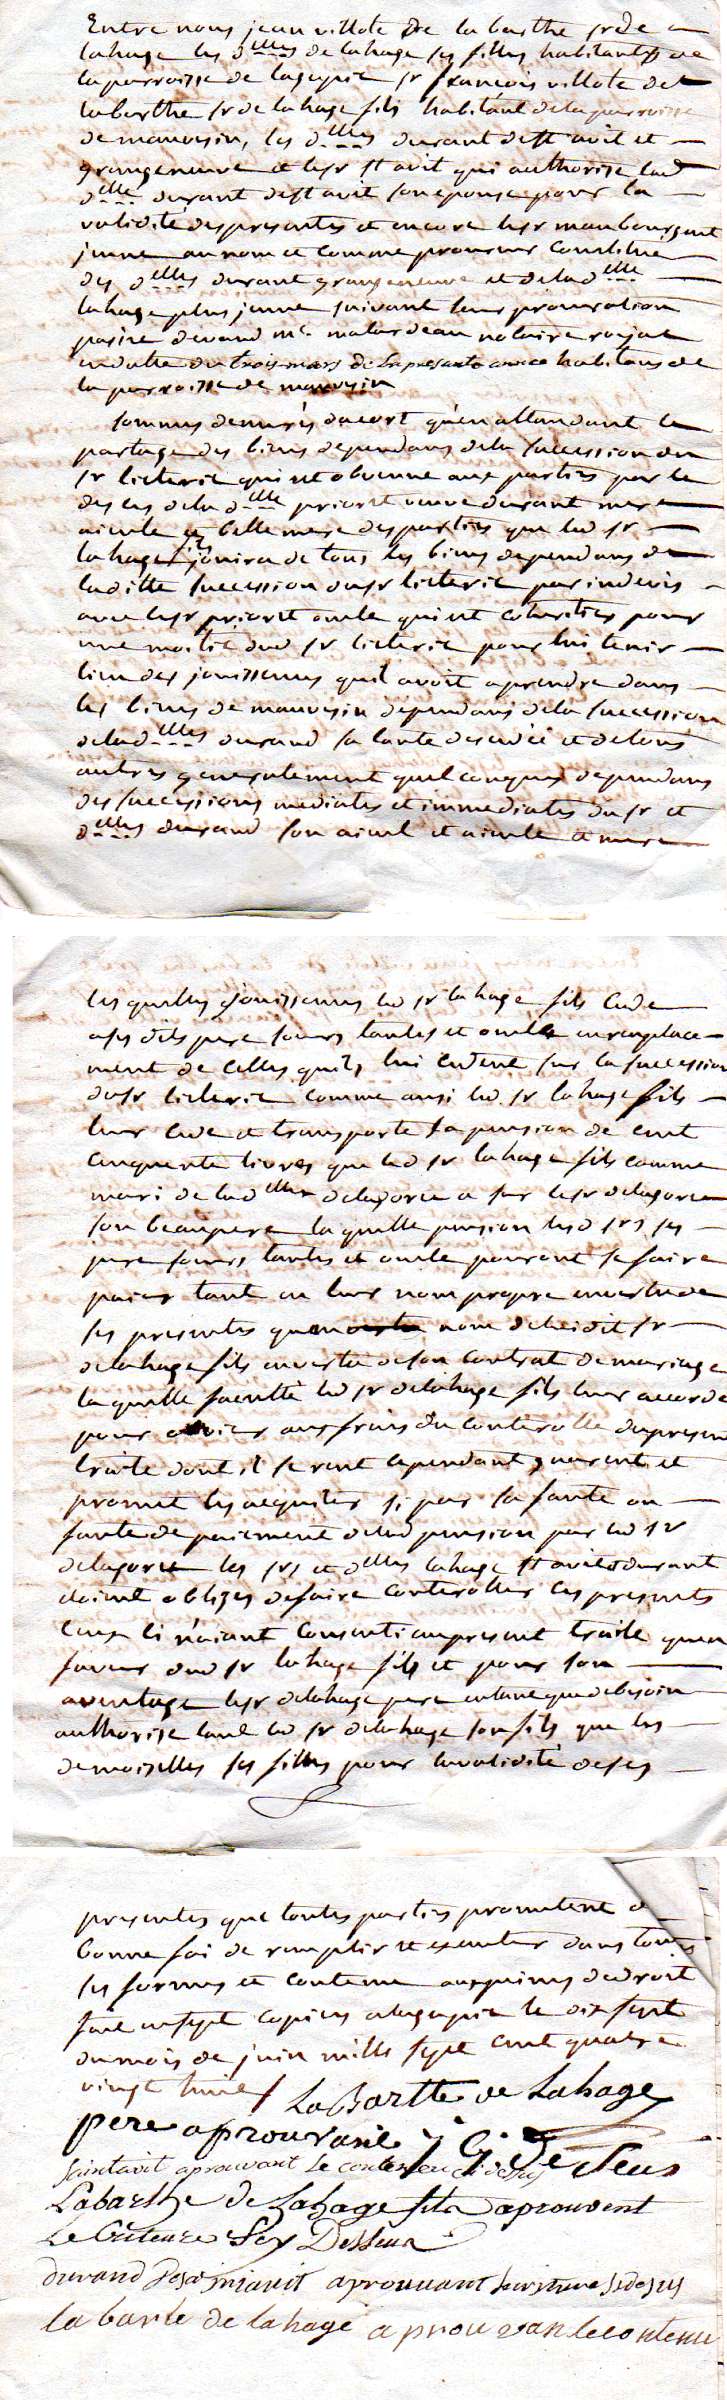 Entre nous jean villote de la barthe sr de
lahage les dlles de lahage ses filles habitants de
la parroisse de lagupie sr francois villote de
labarthe sr de lahage fils habitant de la parroisse
de mauvesin, les dlles durant de st avit et
grangeneuve et le sr st avit qui authorise lad
dlle durant de st avit son epouse pour la
validité des presentes et encore le sr maubourguet
jeune au nom et comme procureur constitué
des dlles durant grangeneuve et de lad dlle
lahage plus jeune suivant leur procuration
passée devand me malardeau notaire royal
en datte du trois mars de la presente année habitans de
la parroisse de mauvesin
sommes demurés dacort qu'en attandant le
partage des biens dependans de la succession du
sr licterie qui est obvenue aux parties par le
deces de lad dlle priorit veuve durant mere
aieule et belle mere des parties que led sr
lahage fils jouira de tous les biens dependans de
laditte succession du sr licterie par indevis
avec le sr priorit oncle qui est coheritier pour
une moitié dud sr licterie pour lui tenir
lieu des jouissences quil avoit a prendre dans
les biens de mauvesin dependans de la succession
de lad dlles durand sa tante decedée et de tous
autres generalement quelconques dependans
des successions mediates et immediates du sr et
dlles durand son aieul et aieule et mere
les quelles jouissences led sr lahage fils cede
a ses dits pere seurs tantes et oncle en remplace-
ment de celles quils lui cedent sur la succession
du sr licterie comme ausi led sr lahage fils
leur cede et transporte la pension de cent
cinquente livres que led sr lahage fils comme
mari de lad dlle delagorce a sur le sr delagorce
son beaupere la quelle pension lesd srs ses
pere seurs tantes et oncle pouront se faire
paier tant en leur nom propre en vertu de
ses presentes quen nom de ledit sr
de lahage fils en vertu de son contrat de mariage
la quelle faculté led sr de lahage fils leur accorde
pour obvier aux frais du controlle du present
traité dont il se rent cependant guarent et
promet les acquiter si par sa faute ou
faute de paiement de lad pension par led sr
delagorce les srs et dlles lahage st avit et durant
etoient obliges de faire controller les presentes
ceux ci n'aiant consenti au present traité quen
faveur dud sr lahage fils et pour son
aventage le sr de lahage pere en tant que de besoin
authorise tant led sr de lahage son fils que les
demoiselles ses filles pour la validité de ses
presentes que toutes parties promettent de
bonne foi de remplir et executer dans toutes
ses formes et contenu aux peines de droit
fait en sept copies a lagupie le dix sept
du mois de juin mille sept cent quatre
vingt huit La Bartte de Lahage
pere aprouvant
Saintavit aprouvant Le contenu ci desus
Labarthe de Lahage fils aprouvent
Le criteure sy Dessus
durand de st avit aprouvant lecriture si desus
la barte de la hage aprouvan le contenu